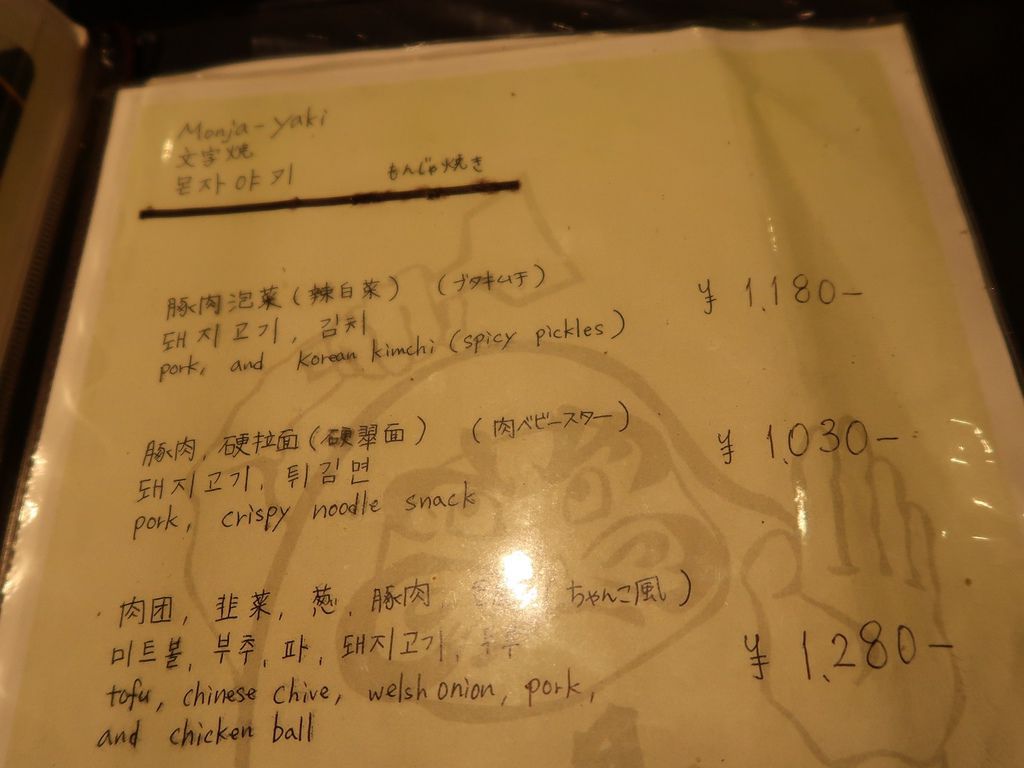 Monja-yaki
文字焼
몬자야키
もんじゃ焼き
豚肉泡菜(辣白菜) (ブタキムチ) ¥1,180-
돼지고기, 김치
pork, and korean kimchi (spicy pickles)
豚肉, 硬拉面(硬翠面) (肉ベビースター) ¥1,030-
돼지고기, 튀김면
pork, crispy noodle snack
肉团, 韭菜, 葱, 豚肉, ちゃんこ風) ¥1,280-
미트볼, 부추, 파, 돼지고기, 두부
tofu, chinese chive, welsh onion, pork,
and chicken ball